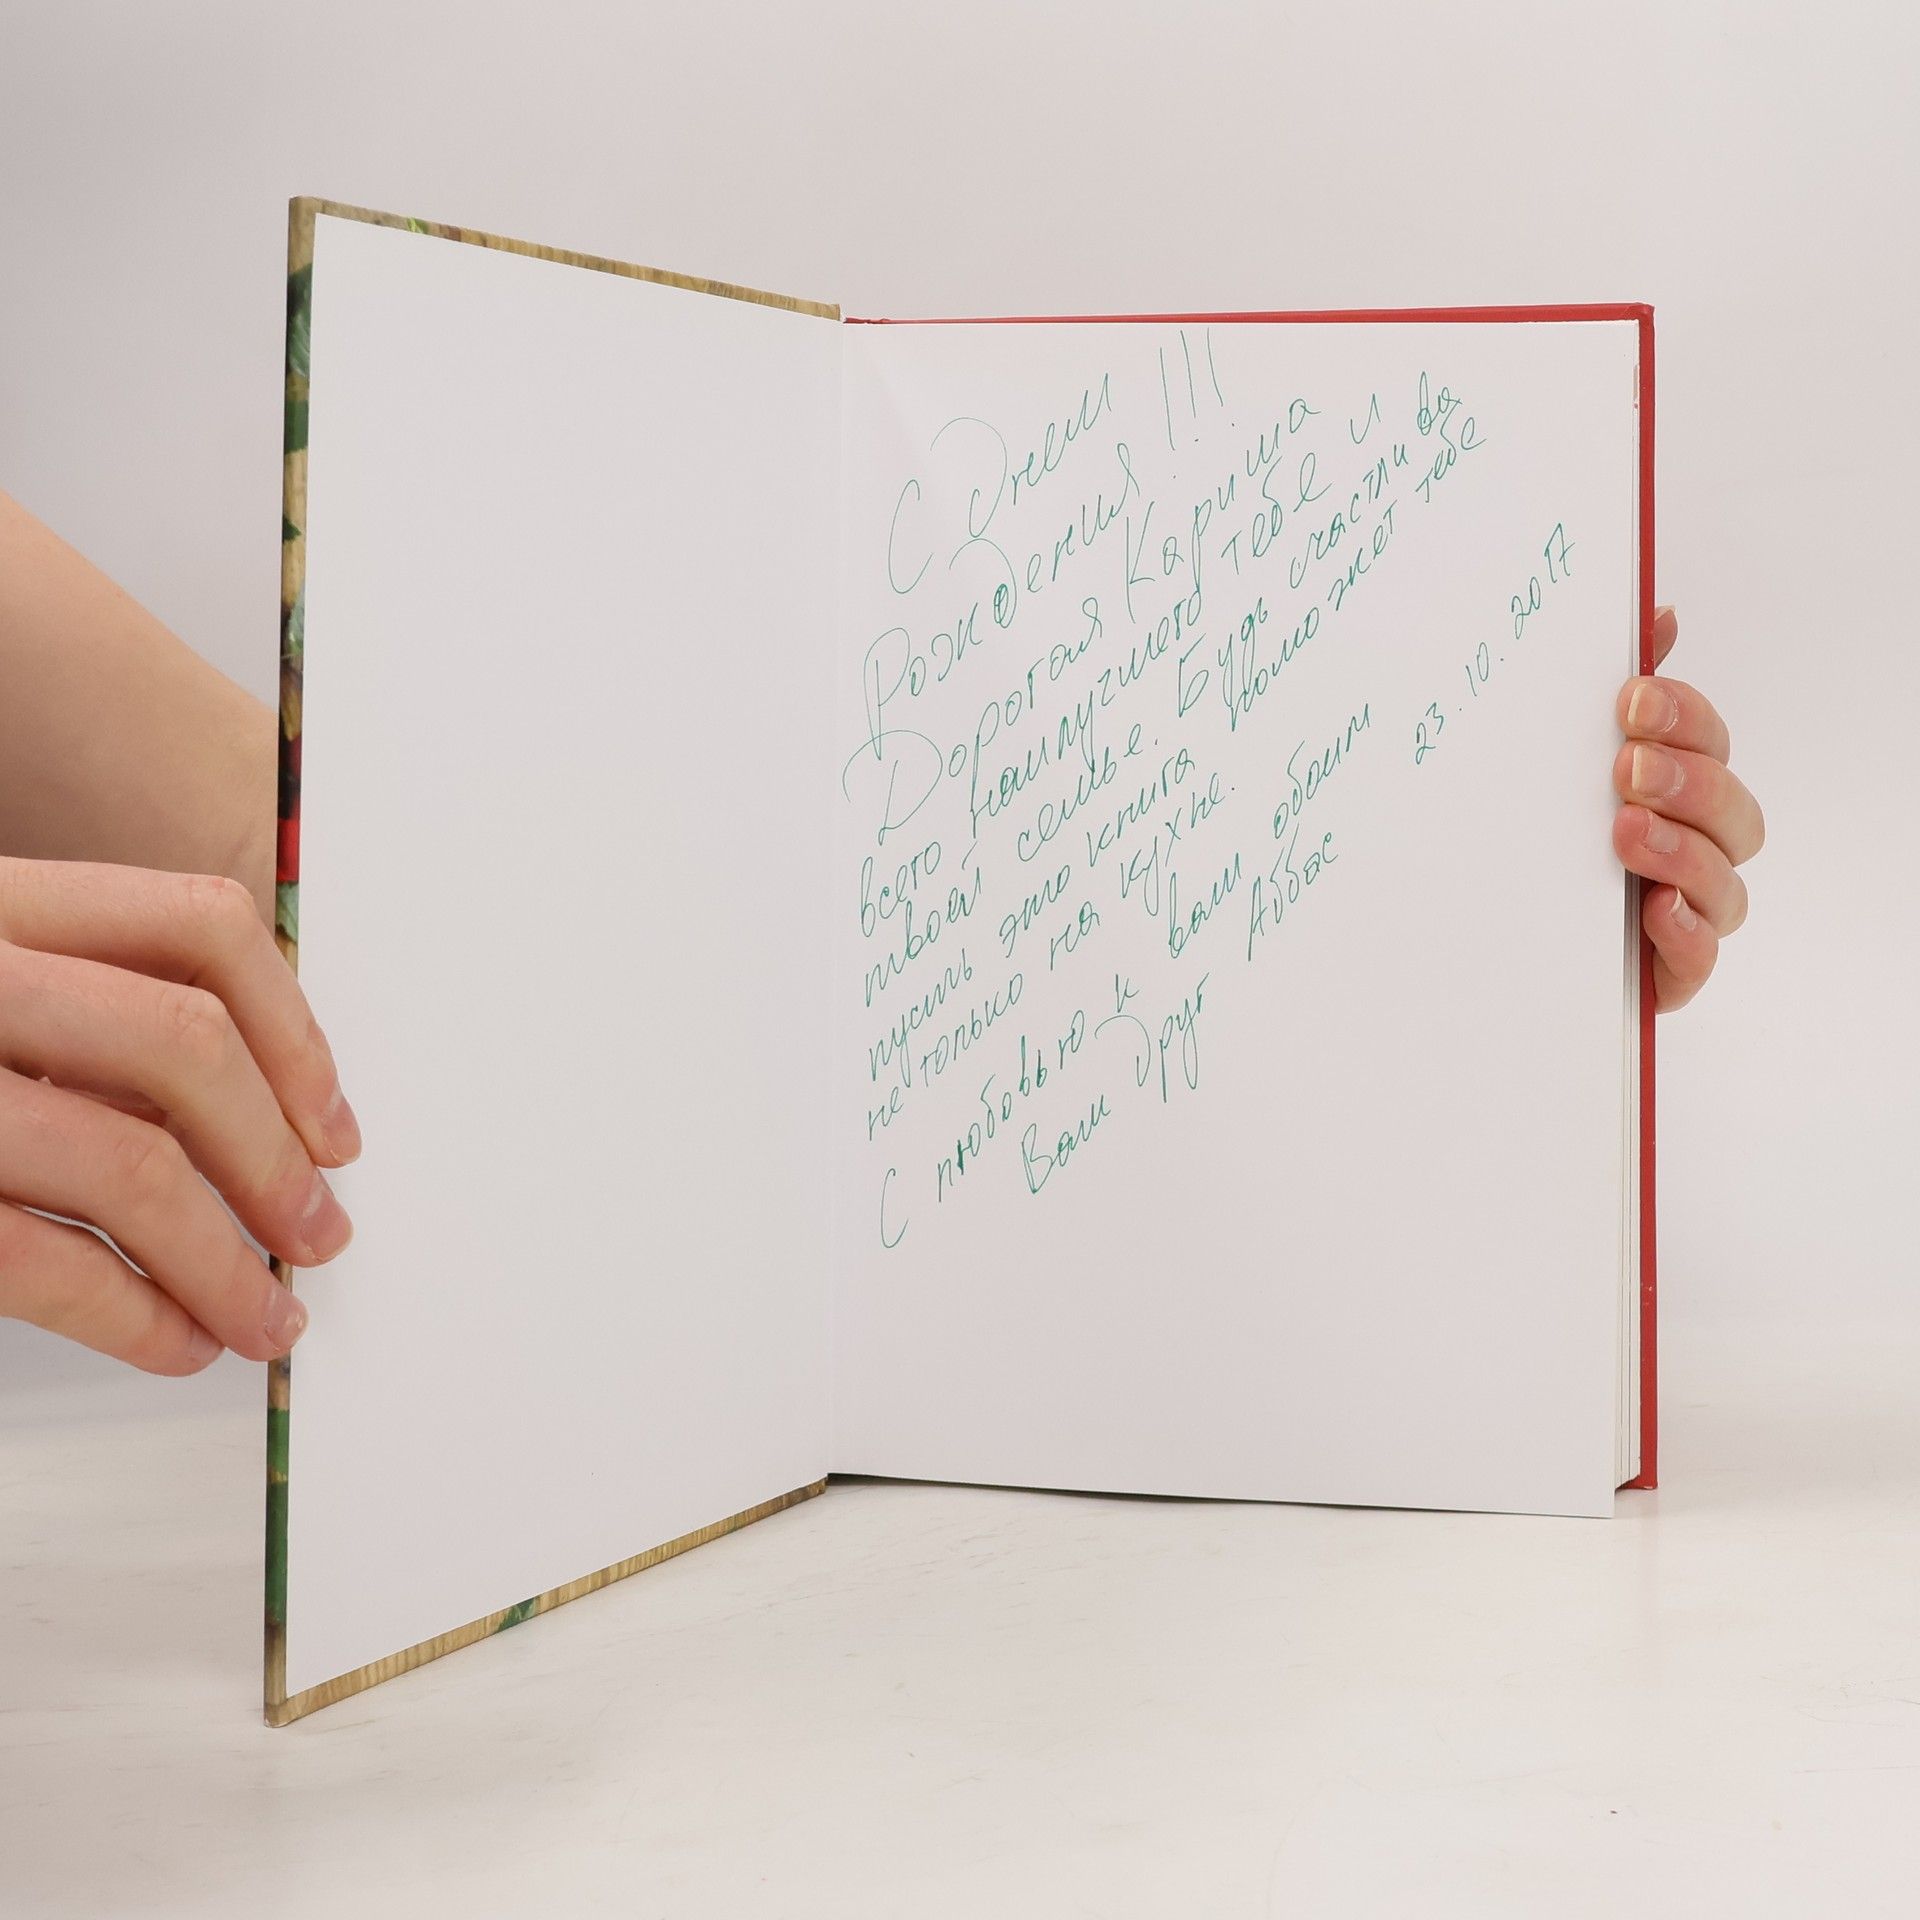 С Днём
Рождения!!!
Дорогая Кариша
всего наилучшего тебе и
твоей семье. Будь счастлива
пусть это книга поможет тебе
не только на кухне.
С любовью к вам обоим
Ваш Друг Аббас
23.10.2017